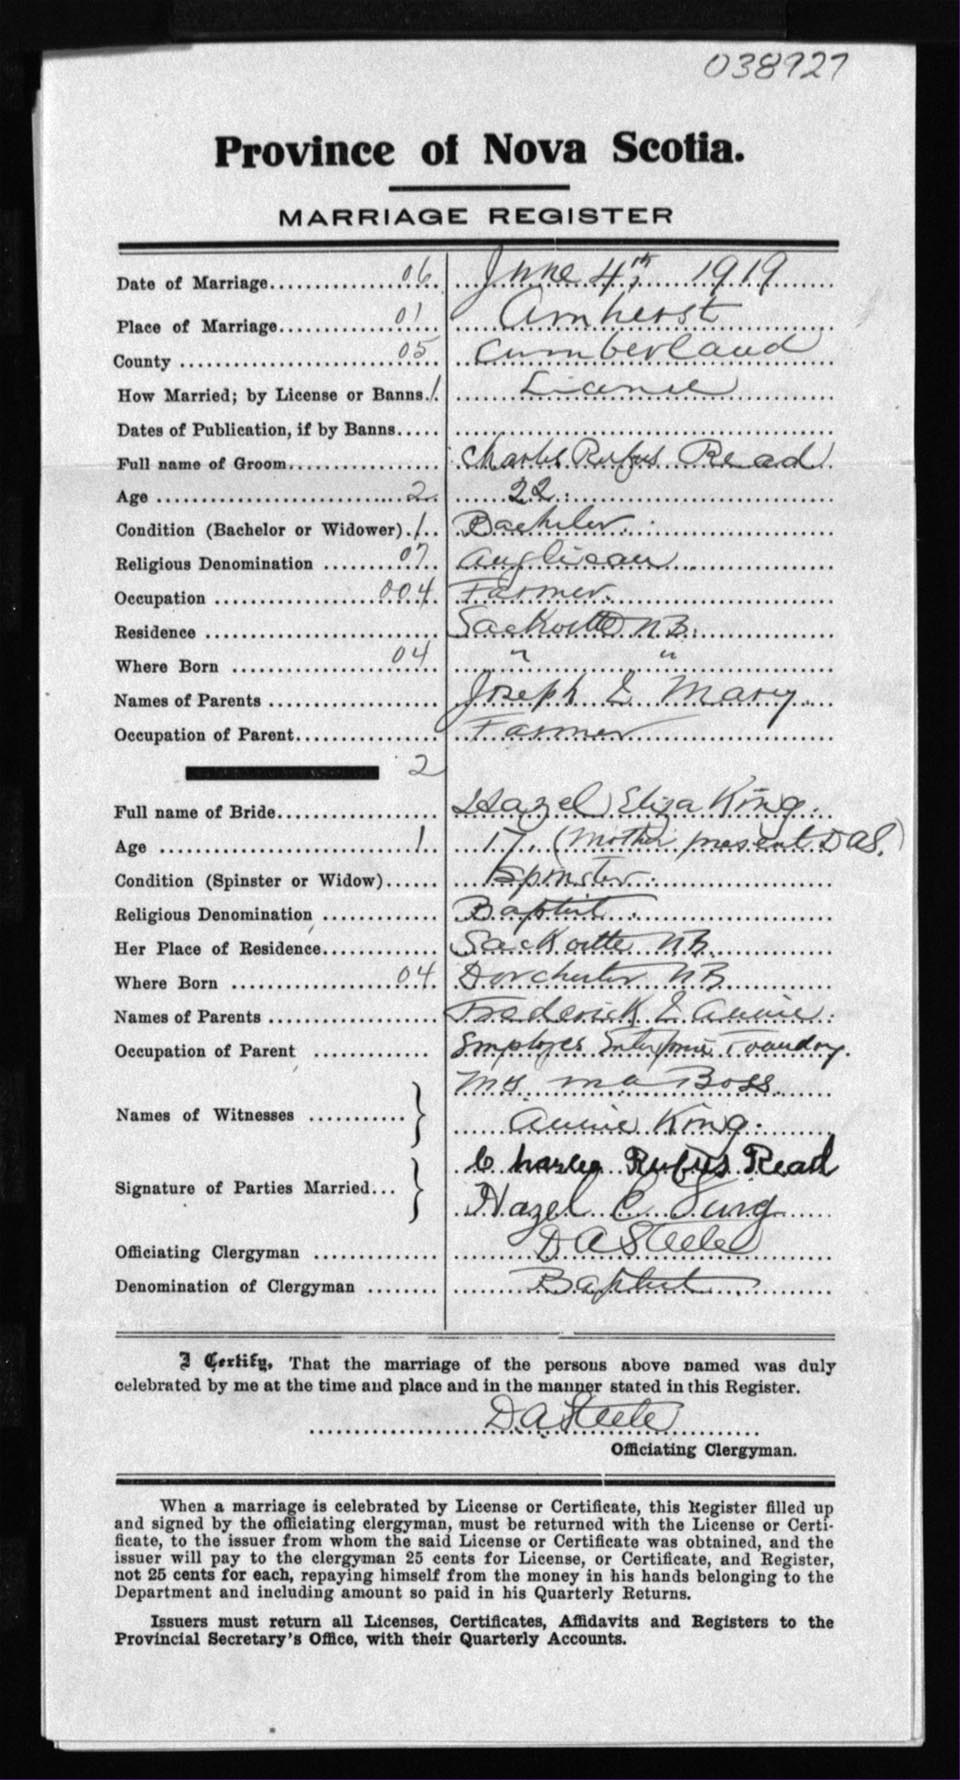 038927
Province of Nova Scotia.
MARRIAGE REGISTER
Date of Marriage................06. June 4th, 1919
Place of Marriage............01.... Amherst
County ........................05.. Cumberland
How Married; by License or Banns.1. License
Dates of Publication, if by Banns.....
Full name of Groom................. Charles Rufus Read
Age ............................2. 22.
Condition (Bachelor or Widower).1.. Bachelor.
Religious Denomination ........07.. Anglican
Occupation ..................004. Farmer.
Residence .......................... Sackville N.B.
Where Born ..................04.... " "
Names of Parents ................... Joseph & Mary.
Occupation of Parent................ Farmer
2
Full name of Bride.................. Hazel Eliza King.
Age ............................1. 17. (Mother present D.A.S.)
Condition (Spinster or Widow)...... Spinster.
Religious Denomination ............. Baptist.
Her Place of Residence............. Sackville N.B.
Where Born ..................04. Dorchester N.B.
Names of Parents ................... Frederick & Annie.
Occupation of Parent ............. Employee Enterprise Foundry.
Names of Witnesses ........... } Boss
Annie King.
Signature of Parties Married... } Charles Rufus Read
Hazel E King
Officiating Clergyman .............. D A Steele
Denomination of Clergyman ........ Baptist
I Certify, That the marriage of the persons above named was duly
celebrated by me at the time and place and in the manner stated in this Register.
D A Steele
Officiating Clergyman.
When a marriage is celebrated by License or Certificate, this Register filled up
and signed by the officiating clergyman, must be returned with the License or Certi-
ficate, to the issuer from whom the said License or Certificate was obtained, and the
issuer will pay to the clergyman 25 cents for License, or Certificate, and Register,
not 25 cents for each, repaying himself from the money in his hands belonging to the
Department and including amount so paid in his Quarterly Returns.
Issuers must return all Licenses, Certificates, Affidavits and Registers to the
Provincial Secretary's Office, with their Quarterly Accounts.